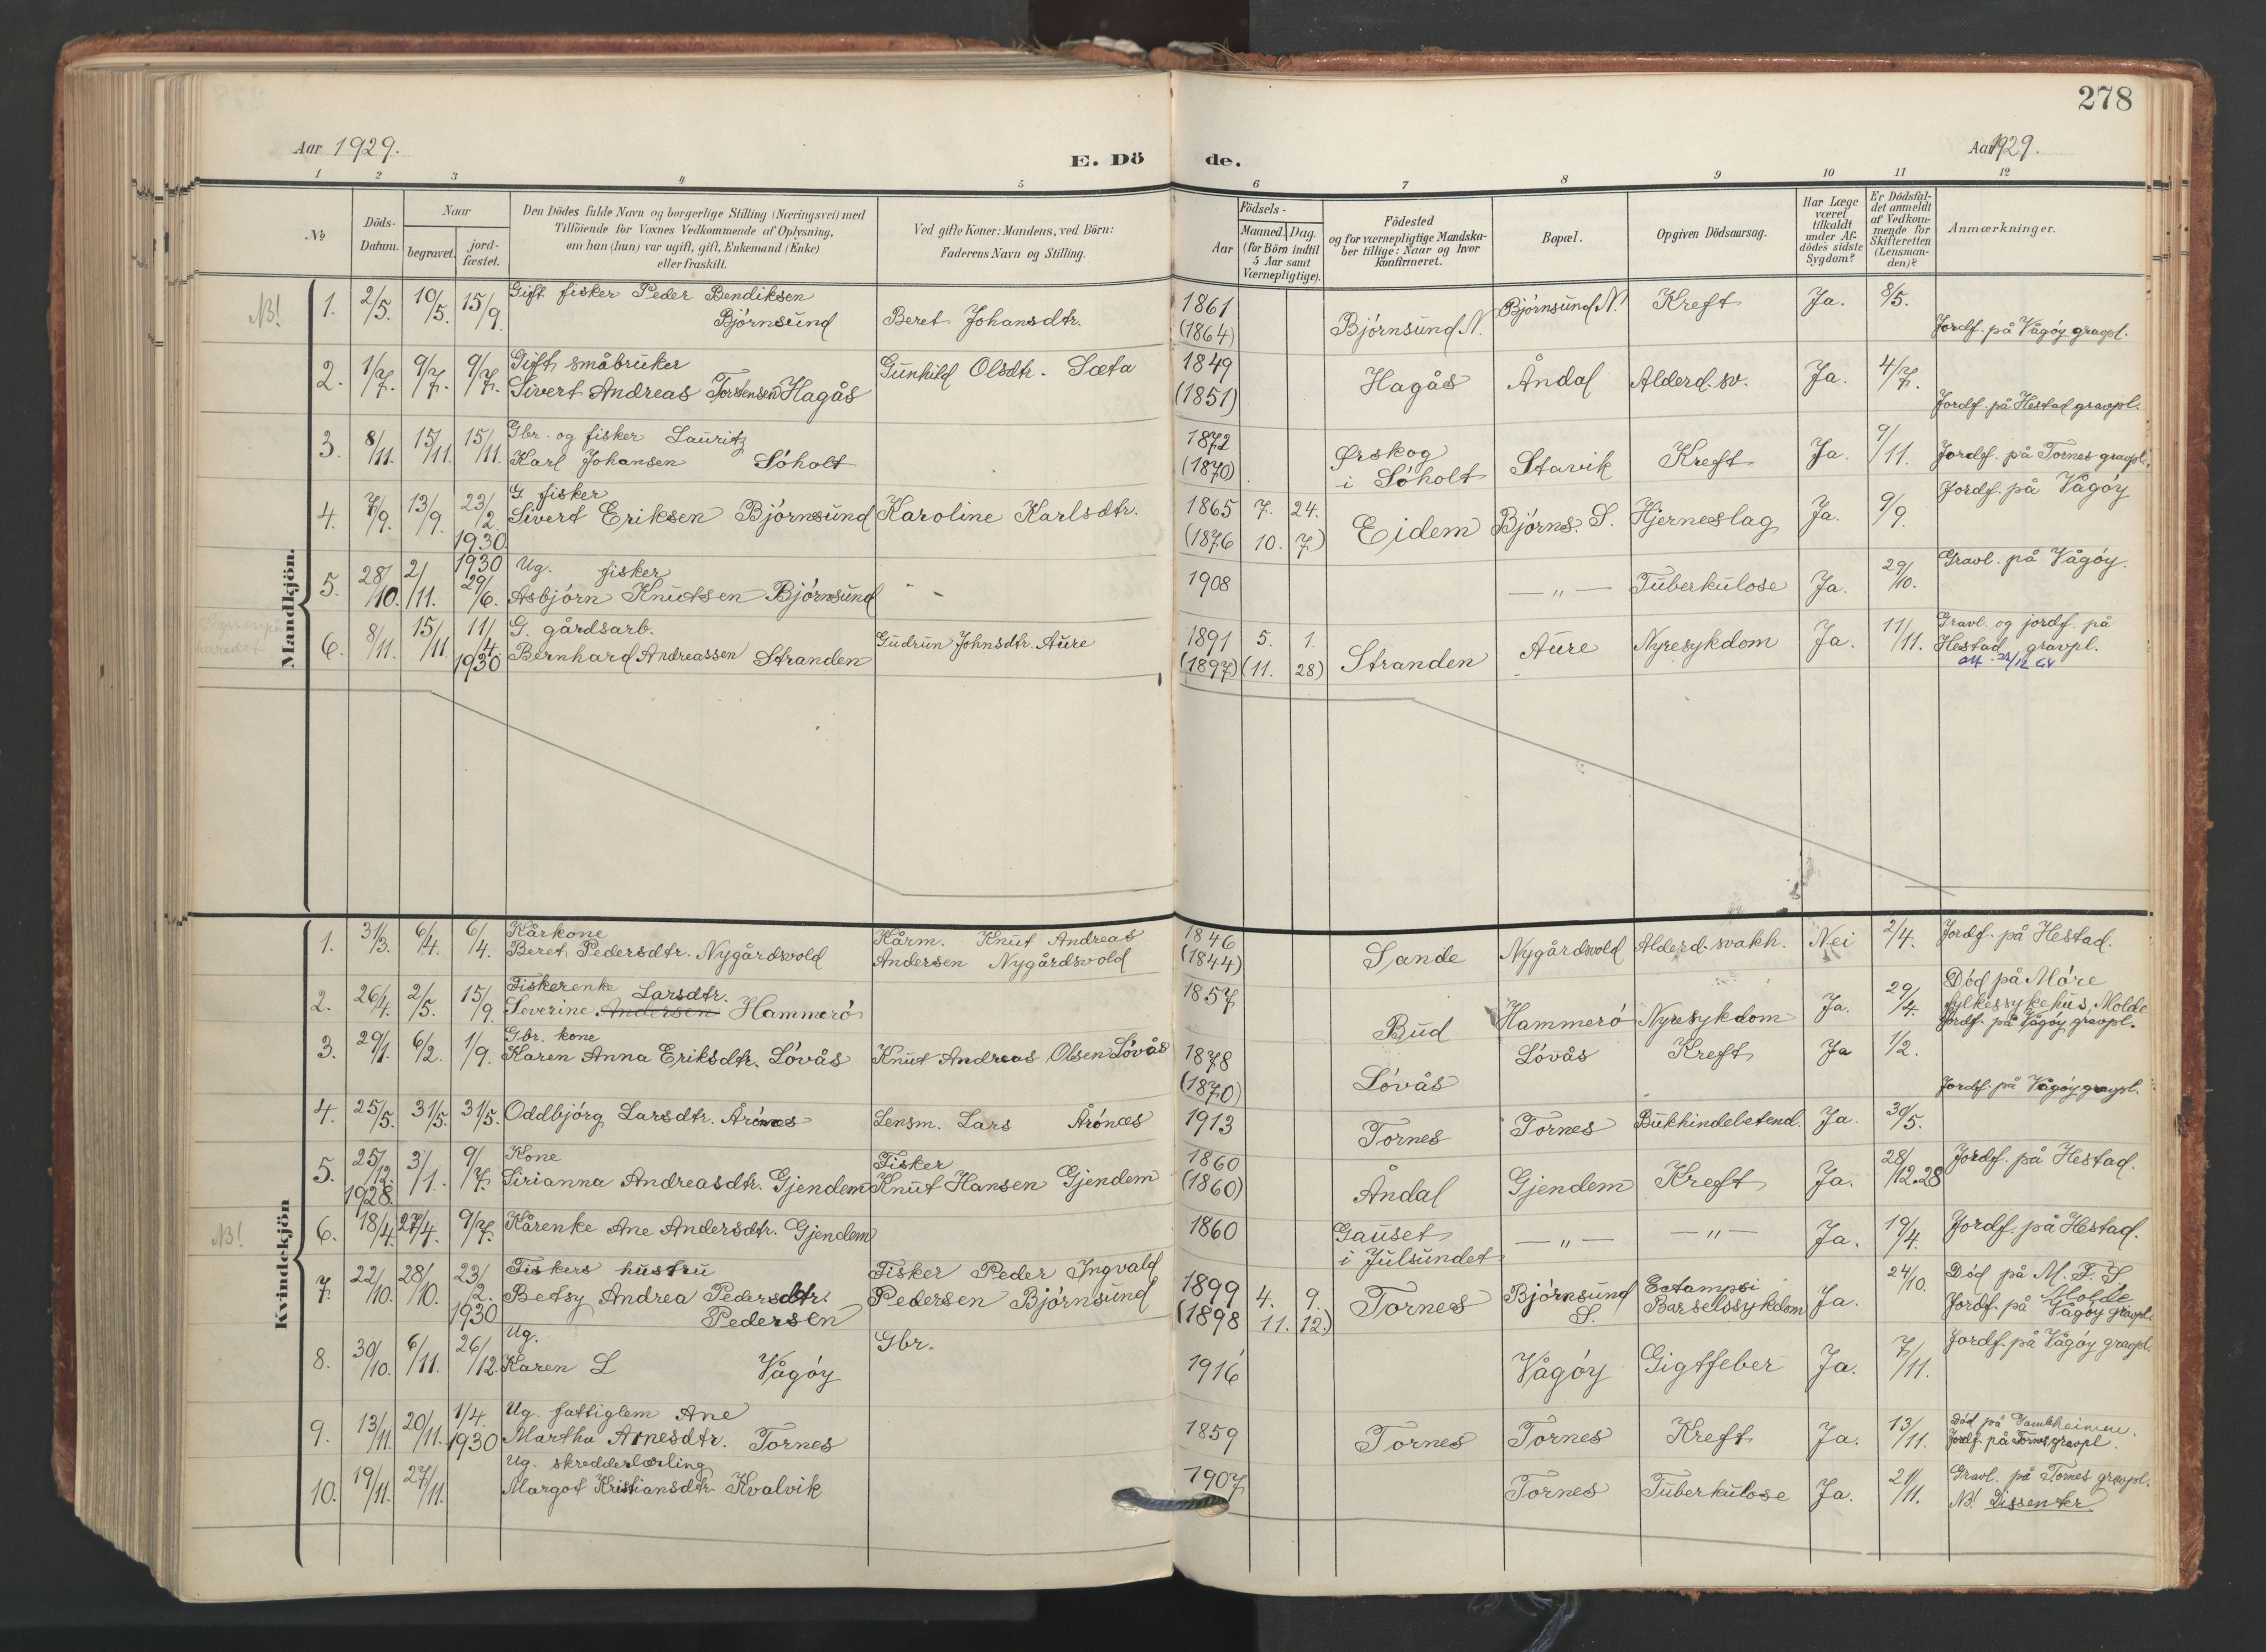 278
Aar 1929.
E. Dö de.
Aar 1929.
1 2 3 4 5 6 7 8 9 10 11 12
No
Döds-
Datum.
Naar
begravet.
jord-
fæstet.
Den Dödes fulde Navn og borgerlige Stilling (Næringsvei) med
Tilföiende for Voxnes Vedkommende af Oplysning,
om han (hun) var ugift, gift, Enkemand (Enke)
eller fraskilt.
Ved gifte Koner: Mandens, ved Börn:
Faderens Navn og Stilling.
Födsels-
Aar
Maaned. Dag.
(for Börn indtil
5 Aar samt
Værnepligtige).
Födested
og for værnepligtige Mandska-
ber tillige: Naar og hvor
konfirmeret.
Bopæl.
Opgiven Dödsaarsag.
Har Læge
været
tilkaldt
under Af-
dödes sidste
Sygdom?
Er Dödsfal-
det anmeldt
af Vedkom-
mende for
Skifteretten
(Lensman-
den)?
Anmærkninger.
Mandkjön.
NB! 1. 2/5. 10/5. 15/9. Gift fisker Peder Bendiksen
Bjórnsund Beret Johansdtr. 1861
(1864) Bjórnsund N. Bjórnsund N. Kreft Ja. 8/5. Jordf. på Vågóy gravpl.
2. 1/7. 9/7. 9/7. Gift småbruker
Sivert Andreas Torstensen Hagås Gunhild Olsdtr. Sæta 1849
(1851) Hagås Åndal Alderd. sv. Ja. 4/7. Jordf. på Hestad gravpl.
3. 8/11. 15/11. 15/11. Gbr. og fisker Lauritz
Karl Johansen Sóholt 1872
(1870) Ørskog
i Sóholt Stavik Kreft Ja. 9/11. Jordf. på Tornes gravpl.
4. 7/9. 13/9. 23/2. 1930. G. fisker
Sivert Eriksen Bjórnsund Karoline Karlsdtr. 1865 7. 24.
(1876 10. 7.) Eidem Bjórns. S. Hjerneslag Ja. 9/9. Jordf. på Vågóy
5. 28/10. 2/11. 1930 29/6. Ug. fisker
Asbjórn Knutsen Bjórnsund 1908 — " — Tuberkulose Ja. 29/10. Gravl. på Vågóy.
6. 8/11. 15/11 11/4. 1930 G. gårdsarb.
Bernhard Andreassen Stranden Gudrun Johnsdtr. Aure 1891 5. 1.
(1897) (11. 28) Stranden Aure Nyresykdom Ja. 11/11. Gravl. og jordf. på
Hestad gravpl.
Kvindekjön
1. 31/3. 6/4. 6/4. Kårkone
Beret Pedersdtr. Nygårdsvold Kårm. Knut Andreas
Andersen Nygårdsvold 1846
(1844) Sande Nygårdsvold Alderd. svakh. Nei 2/4. Jordf. på Hestad.
2. 26/4. 2/5. 15/9. Fiskerenke Larsdtr.
Severine Andersen Hammeró 1857 Bud Hammeró Nyresykdom Ja. 29/4. Dód på Móre
fylkessykehus, Molde
Jordf. på Vågóy gravpl.
3. 29/1. 6/2. 1/9. Gbr. kone
Karen Anna Eriksdtr. Lóvås Knut Andreas Olsen Lóvås 1878
(1870) Lóvås Lóvås Kreft Ja 1/2. Jordf. på Vågóy gravpl.
4. 25/5. 31/5. 31/5. Oddbjórg Larsdtr. Årónes Lensm. Lars Årónes 1913 Tornes Tornes Bukhindebetend. Ja. 30/5.
5. 25/12. 1928. 3/1. 9/7. Kone
Sirianna Andreasdtr. Gjendem Fisker
Knut Hansen Gjendem 1860
(1860) Åndal Gjendem Kreft Ja. 28/12.28 Jordf. på Hestad.
NB! 6. 18/4. 27/4. 9/7. Kårenke Ane Andersdtr. Gjendem 1860 Gauset
i Julsundet — " — — " — Ja. 19/4. Jordf. på Hestad.
7. 22/10. 28/10. 23/2. 1930 Fiskers hustru
Betsy Andrea Pedersdtr.
Pedersen Fisker Peder Ingvald
Pedersen Bjórnsund 1899 4. 9.
(1898 11. 12.) Tornes Bjórnsund
S. Ectampsi
Barselssykdom Ja. 24/10. Dód på M. F. S
Molde
Jordf. på Vågóy gravpl.
8. 30/10. 6/11. 26/12. Ug.
Karen L Vågóy Gbr. 1916 Vågóy Gigtfeber Ja. 7/11. Jordf. på Vågóy gravpl.
9. 13/11. 20/11. 1/4. 1930 Ug. fattiglem Ane
Martha Arnesdtr. Tornes 1859 Tornes Tornes Kreft Ja. 13/11. Död på Gamleheimen.
Jordf. på Tornes gravpl.
10. 19/11. 27/11. Ug. skredderlærling
Margot Kristiansdtr. Kvalvik 1907 Tornes Tuberkulose Ja. 21/11. Gravl. på Tornes gravpl.
NB! Dissenter